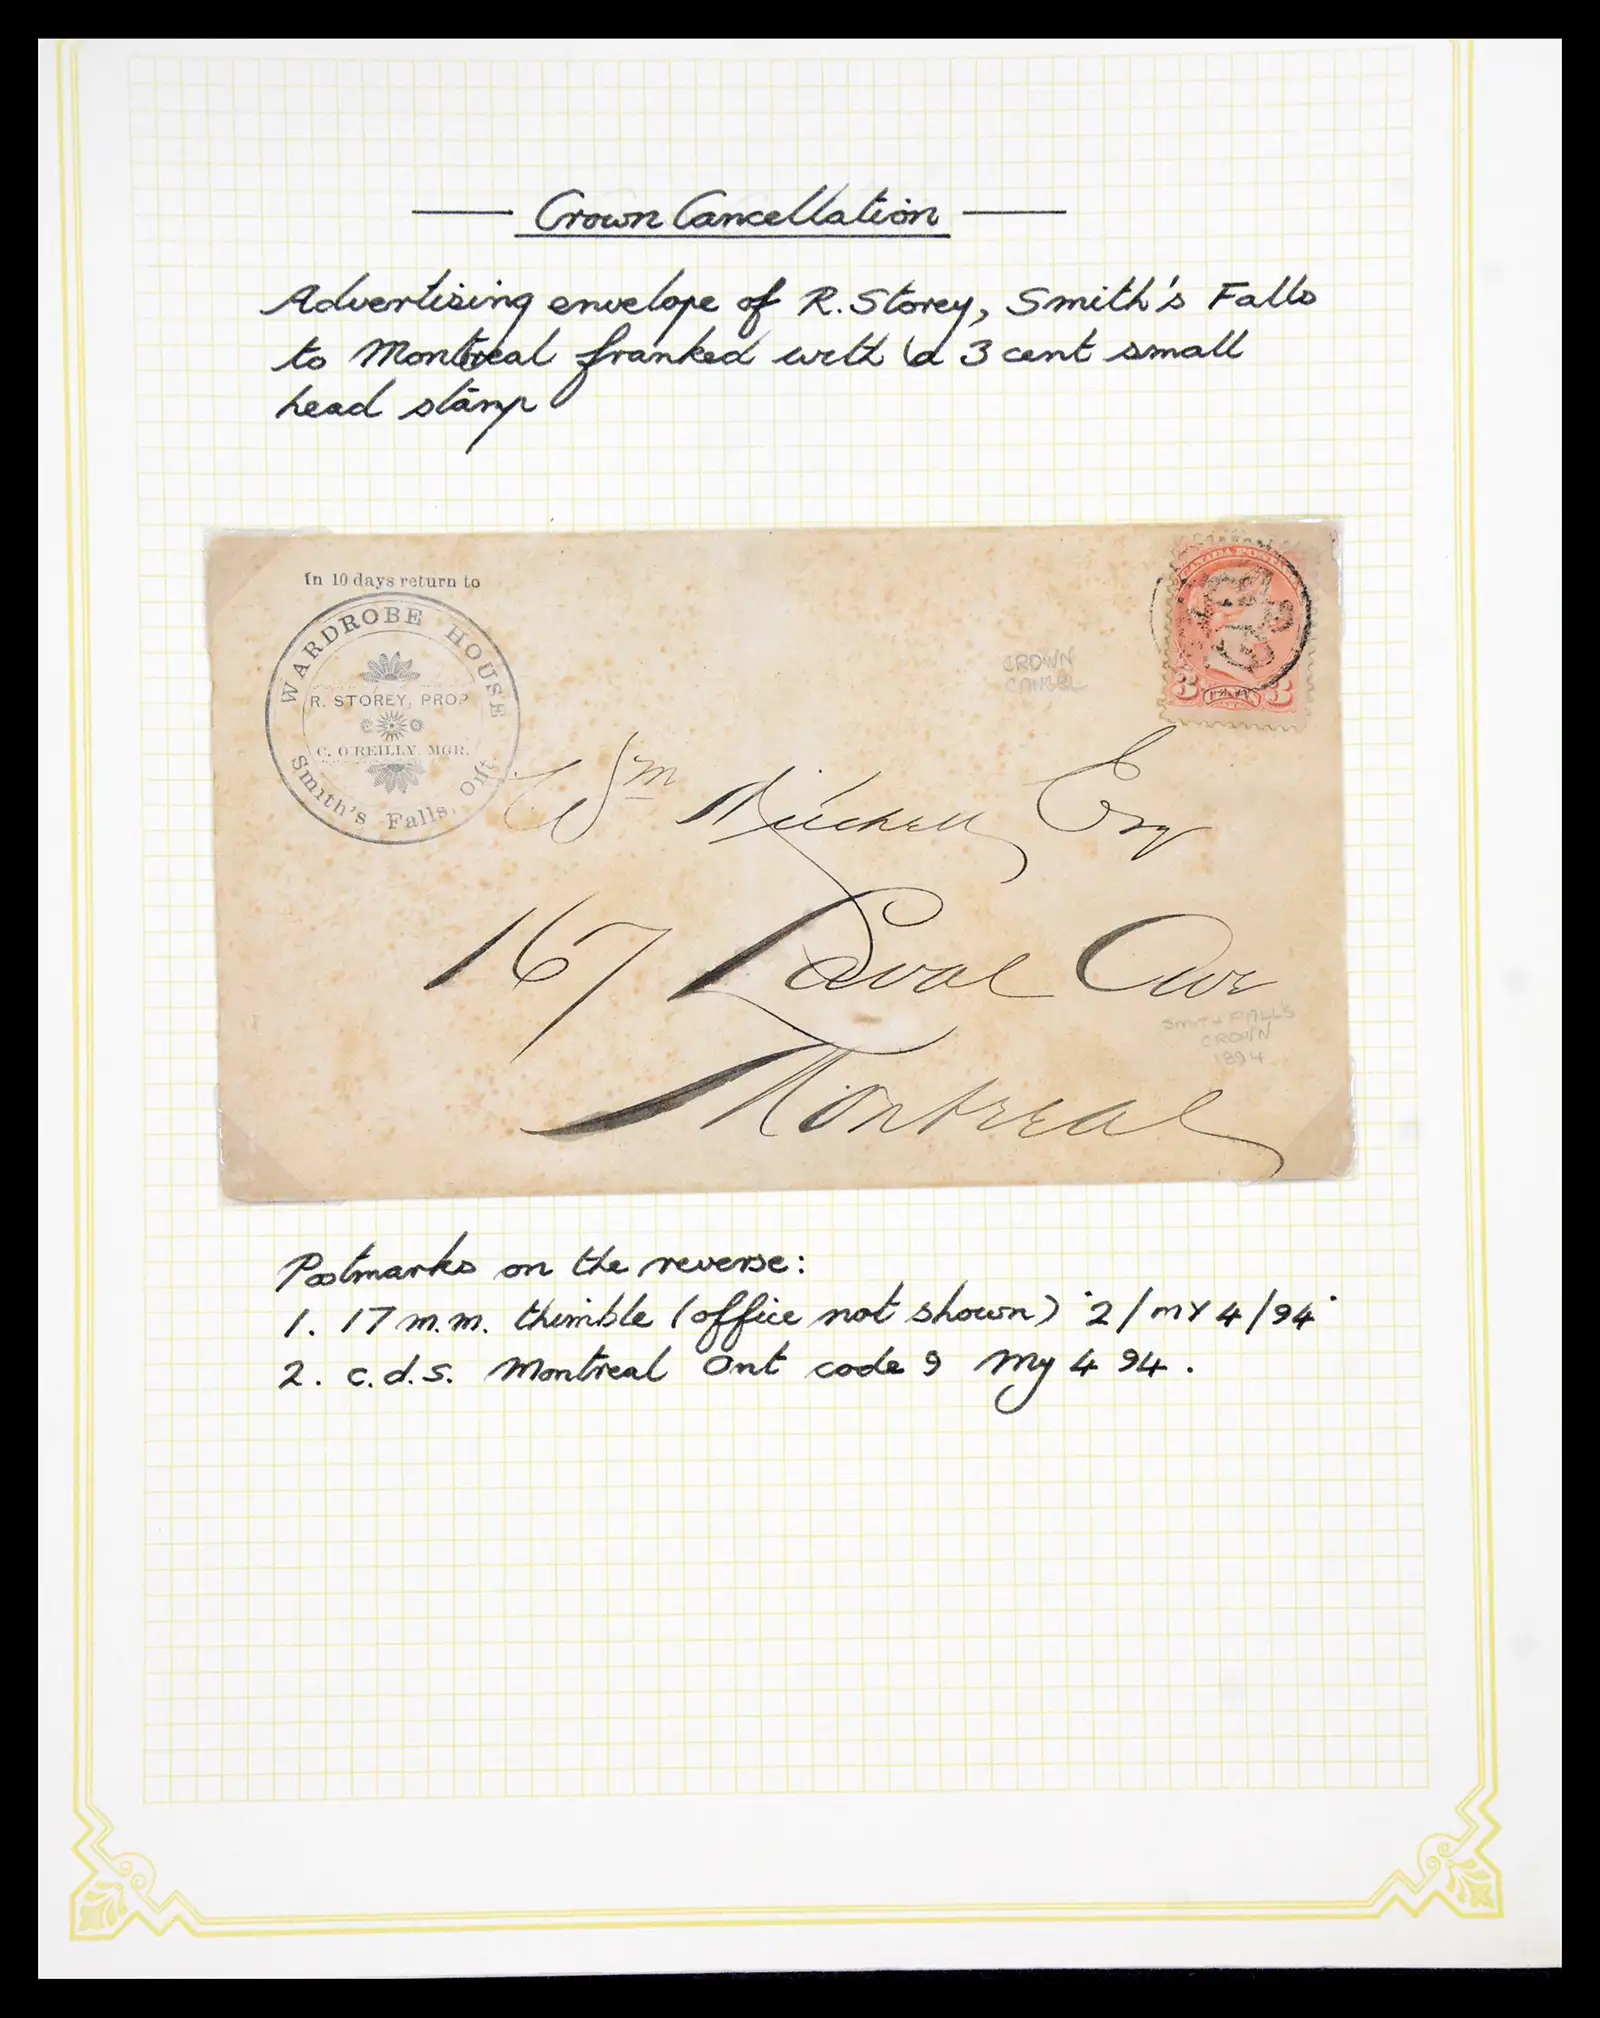 Crown Cancellation
Advertising envelope of R. Storey, Smith's Falls
to Montreal franked with a 3 cent small
head stamp
In 10 days return to
WARDROBE HOUSE
R. STOREY, PROP
C. O'REILLY, MGR.
Smith's Falls, Ont.
CANADA POSTAGE
3 3
CROWN
CANCEL
Wm Mitchell Esq
167 Laval Ave
SMITH FALL'S
CROWN
1894
Montreal
Postmarks on the reverse:
1. 17 m.m. thimble (office not shown) '2/MY 4/94'
2. c.d.s. Montreal Ont code 9 My 4 94.